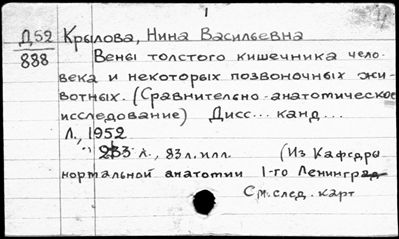 1
Д52 Крылова, Нина Васильевна
888 Вены толстого кишечника чело-
века и некоторых позвоночных жи-
вотных. (Сравнительно-анатомическое
исследование) Дисс... канд...
Л., 1952
233 л., 83 л. илл. (Из Кафедры
нормальной анатомии 1-го Ленинград
См. след. карт